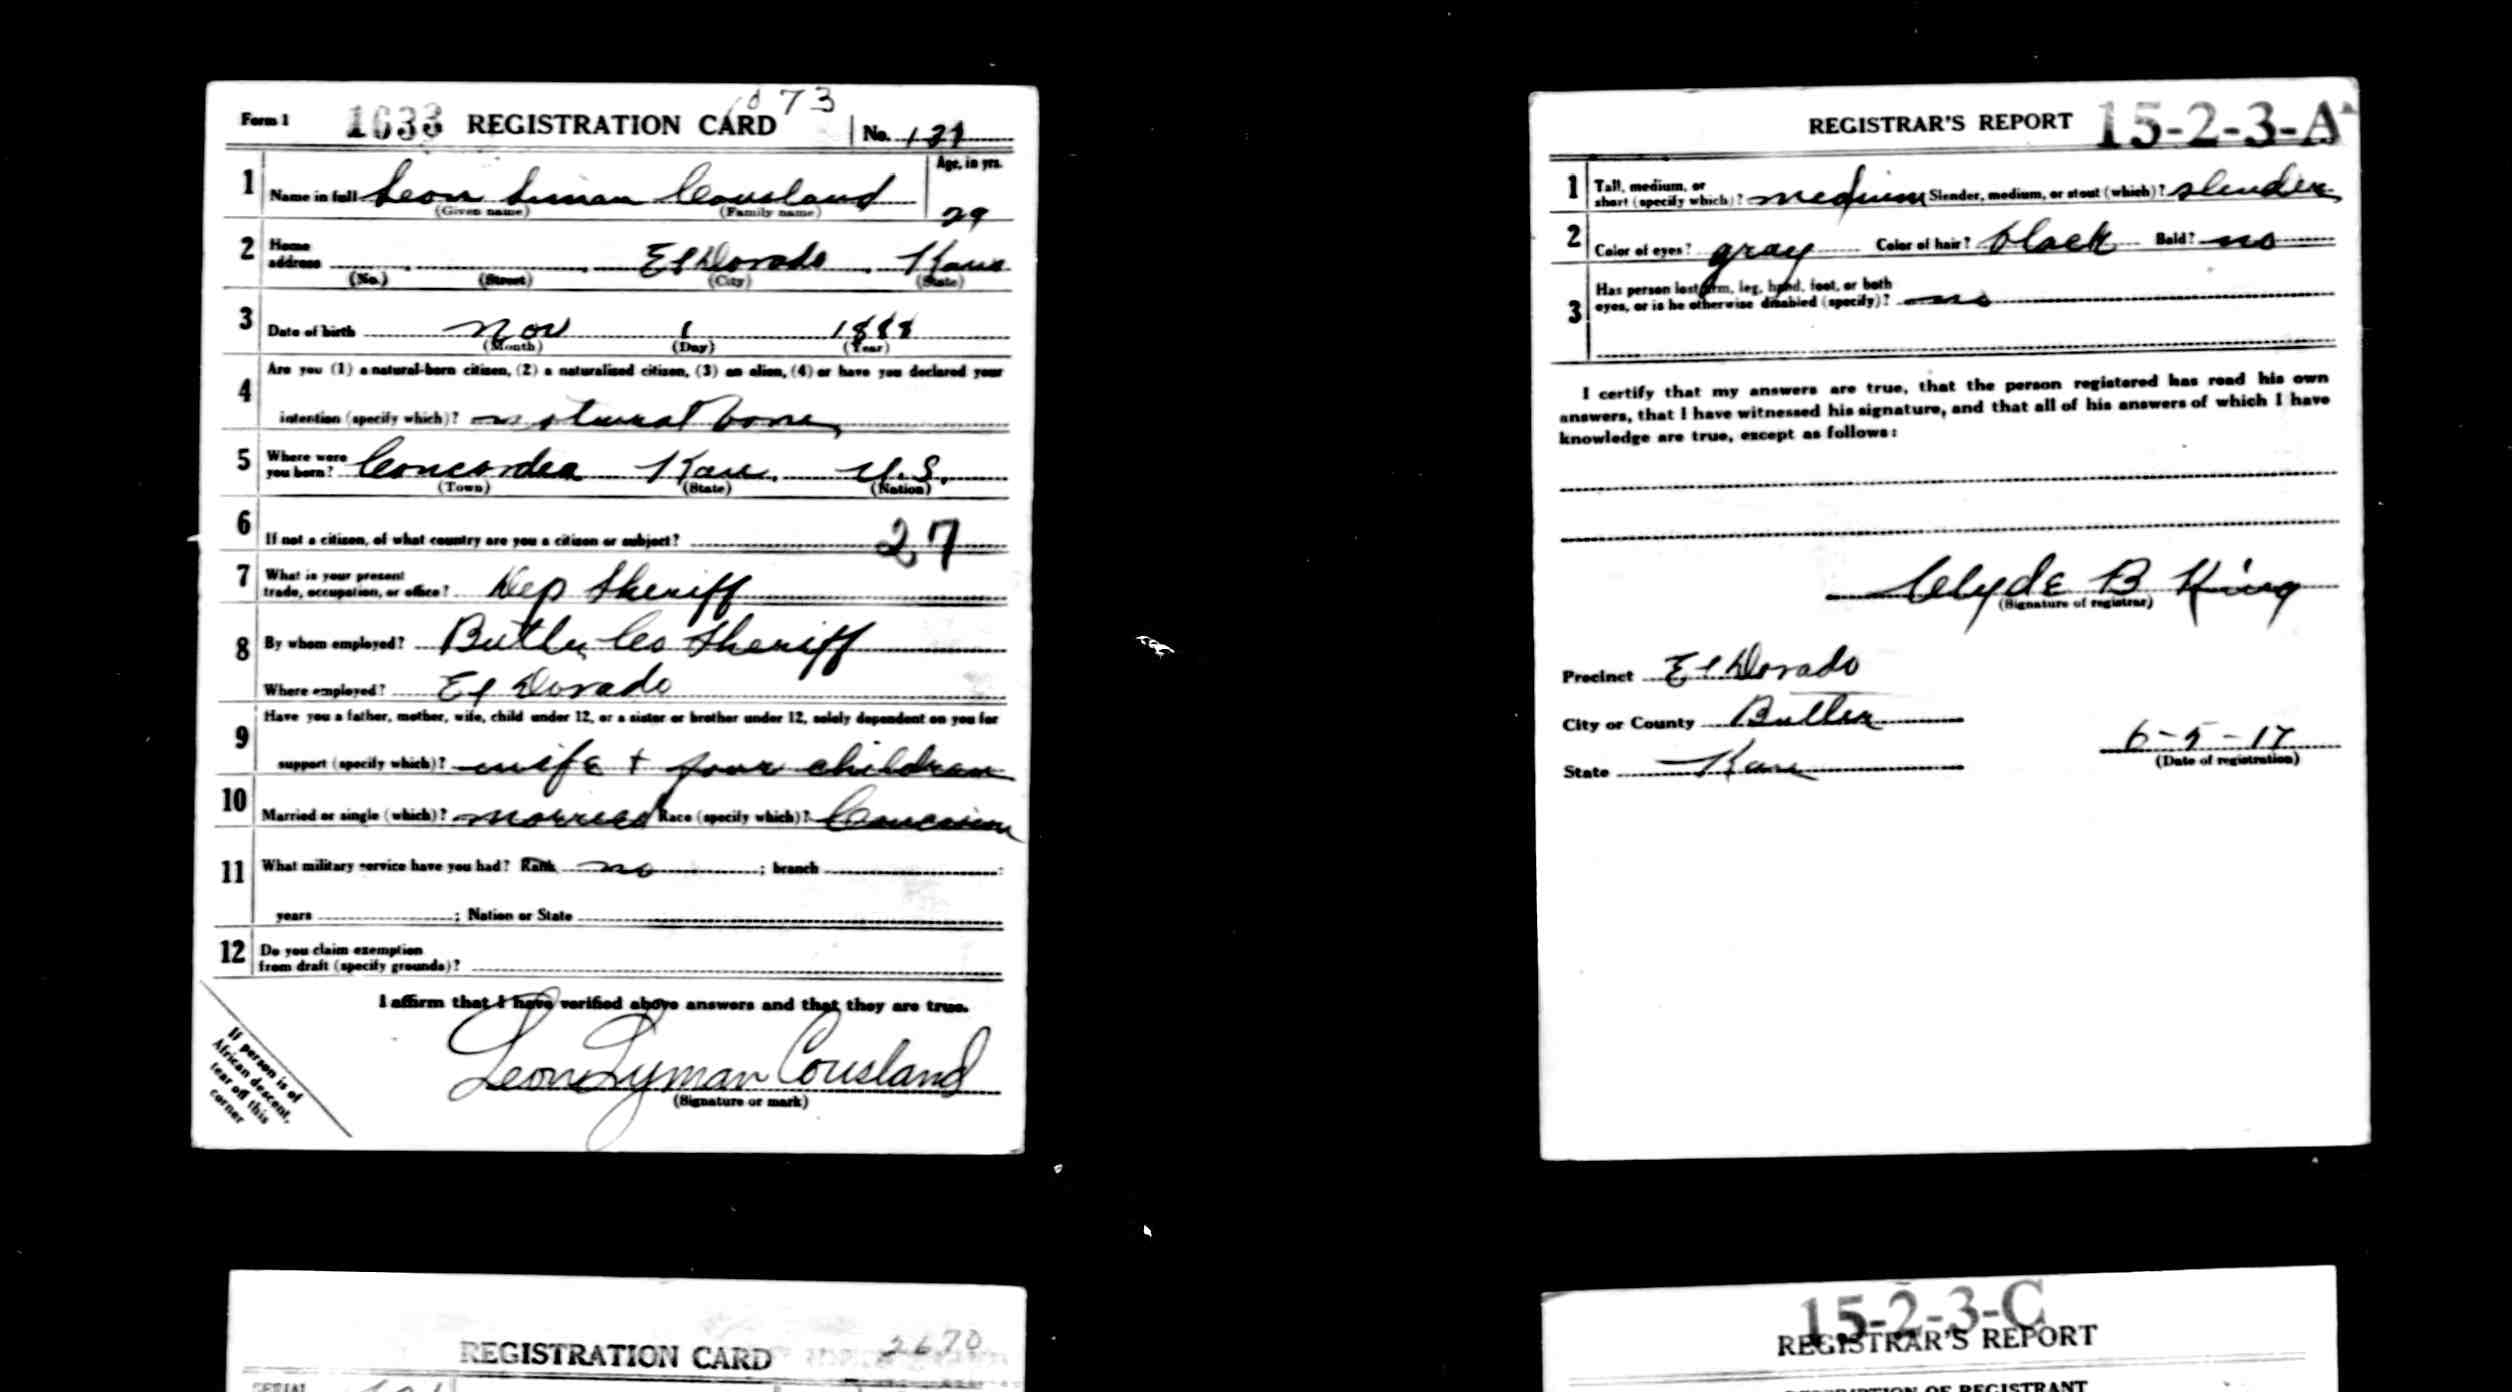 1073
Form 1 1633 REGISTRATION CARD No. 137
1 Name in full Leon Liman Cousland Age, in yrs. 29
(Given name) (Family name)
2 Home address El Dorado, Kans
(No.) (Street) (City) (State)
3 Date of birth Nov 1 1888
(Month) (Day) (Year)
4 Are you (1) a natural-born citizen, (2) a naturalized citizen, (3) an alien, (4) or have you declared your
intention (specify which)? natural born
5 Where were you born? Concordia Kans. U.S.
(Town) (State) (Nation)
6 If not a citizen, of what country are you a citizen or subject? 27
7 What is your present trade, occupation, or office? Dep Sheriff
8 By whom employed? Butler Co Sheriff
Where employed? El Dorado
9 Have you a father, mother, wife, child under 12, or a sister or brother under 12, solely dependent on you for
support (specify which)? wife + four children
10 Married or single (which)? married Race (specify which)? Caucasian
11 What military service have you had? Rank no ; branch
years ; Nation or State
12 Do you claim exemption
from draft (specify grounds)?
I affirm that I have verified above answers and that they are true.
Leon Lyman Cousland
(Signature or mark)
If person is of
African descent,
tear off this
corner
REGISTRAR'S REPORT 15-2-3-A
1 Tall, medium, or short (specify which)? medium Slender, medium, or stout (which)? slender
2 Color of eyes? gray Color of hair? black Bald? no
3 Has person lost arm, leg, hand, foot, or both
eyes, or is he otherwise disabled (specify)? no
I certify that my answers are true, that the person registered has read his own
answers, that I have witnessed his signature, and that all of his answers of which I have
knowledge are true, except as follows:
Clyde B King
(Signature of registrar)
Precinct El Dorado
City or County Butler
State Kans
6-5-17
(Date of registration)
REGISTRATION CARD 2670
SERIAL
15-2-3-C
REGISTRAR'S REPORT
DESCRIPTION OF REGISTRANT